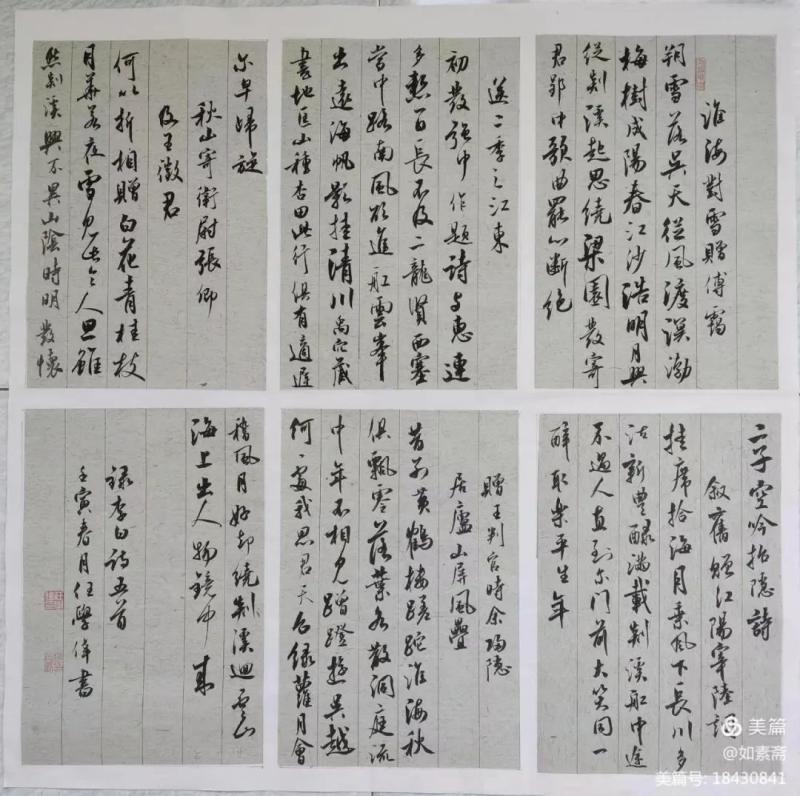 淮海對雪贈傅靄
朔雪落吳天從風渡溟渤
梅樹成陽春江沙浩明月興
從剡溪起思繞梁園發寄
君郢中歌曲罷心斷絕
送二季之江東
初發強中作題詩與惠連
多慙一日長不及二龍賢西塞
當中路南風欲進船雲峯
出遠海帆影挂清川禹穴藏
書地匡山種杏田此行俱有適遲
尔早歸旋
秋山寄衛尉張卿
及王徵君
何以折相贈白花青桂枝
月華若夜雪見此令人思雖
然剡溪興不異山陰時明發懷
二子空吟招隱詩
敘舊贈江陽宰陸調
挂席拾海月乘風下長川多
沽新豐醁滿載剡溪船中途
不遇人直到尔門前大笑同一
醉取樂平生年
贈王判官時余歸隱
居廬山屏風疊
昔別黃鶴樓蹉跎淮海秋
俱飄零落葉各散洞庭流
中年不相見蹭蹬遊吳越
何處我思君天台綠蘿月會
稽風月好却繞剡溪迴雲山
海上出人物鏡中來
錄李白詩五首
壬寅春月任學偉書
美篇
@如素斋
美篇号: 18430841